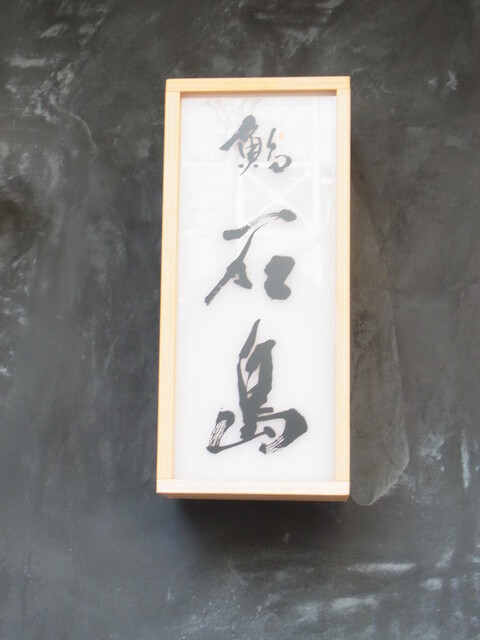 鮨
石島